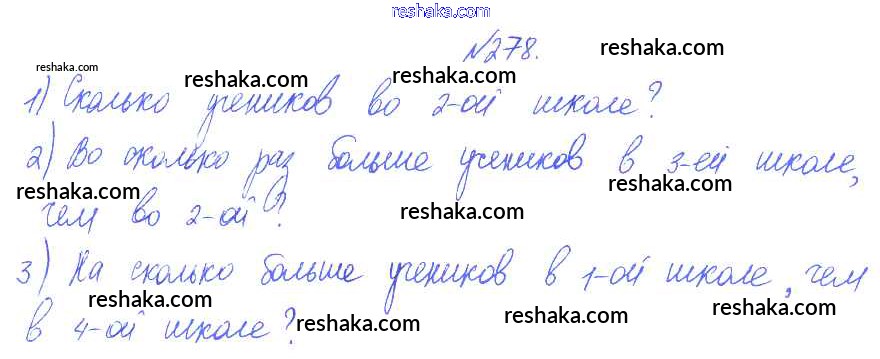 reshaka.com
№278. reshaka.com
reshaka.com reshaka.com reshaka.com
1) Сколько учеников во 2-ой школе?
2) Во сколько раз больше учеников в 3-ей школе,
reshaka.com reshaka.com reshaka.com
чем во 2-ой?
3) На сколько больше учеников в 1-ой школе, чем
reshaka.com reshaka.com reshaka.com reshaka.com
в 4-ой школе?